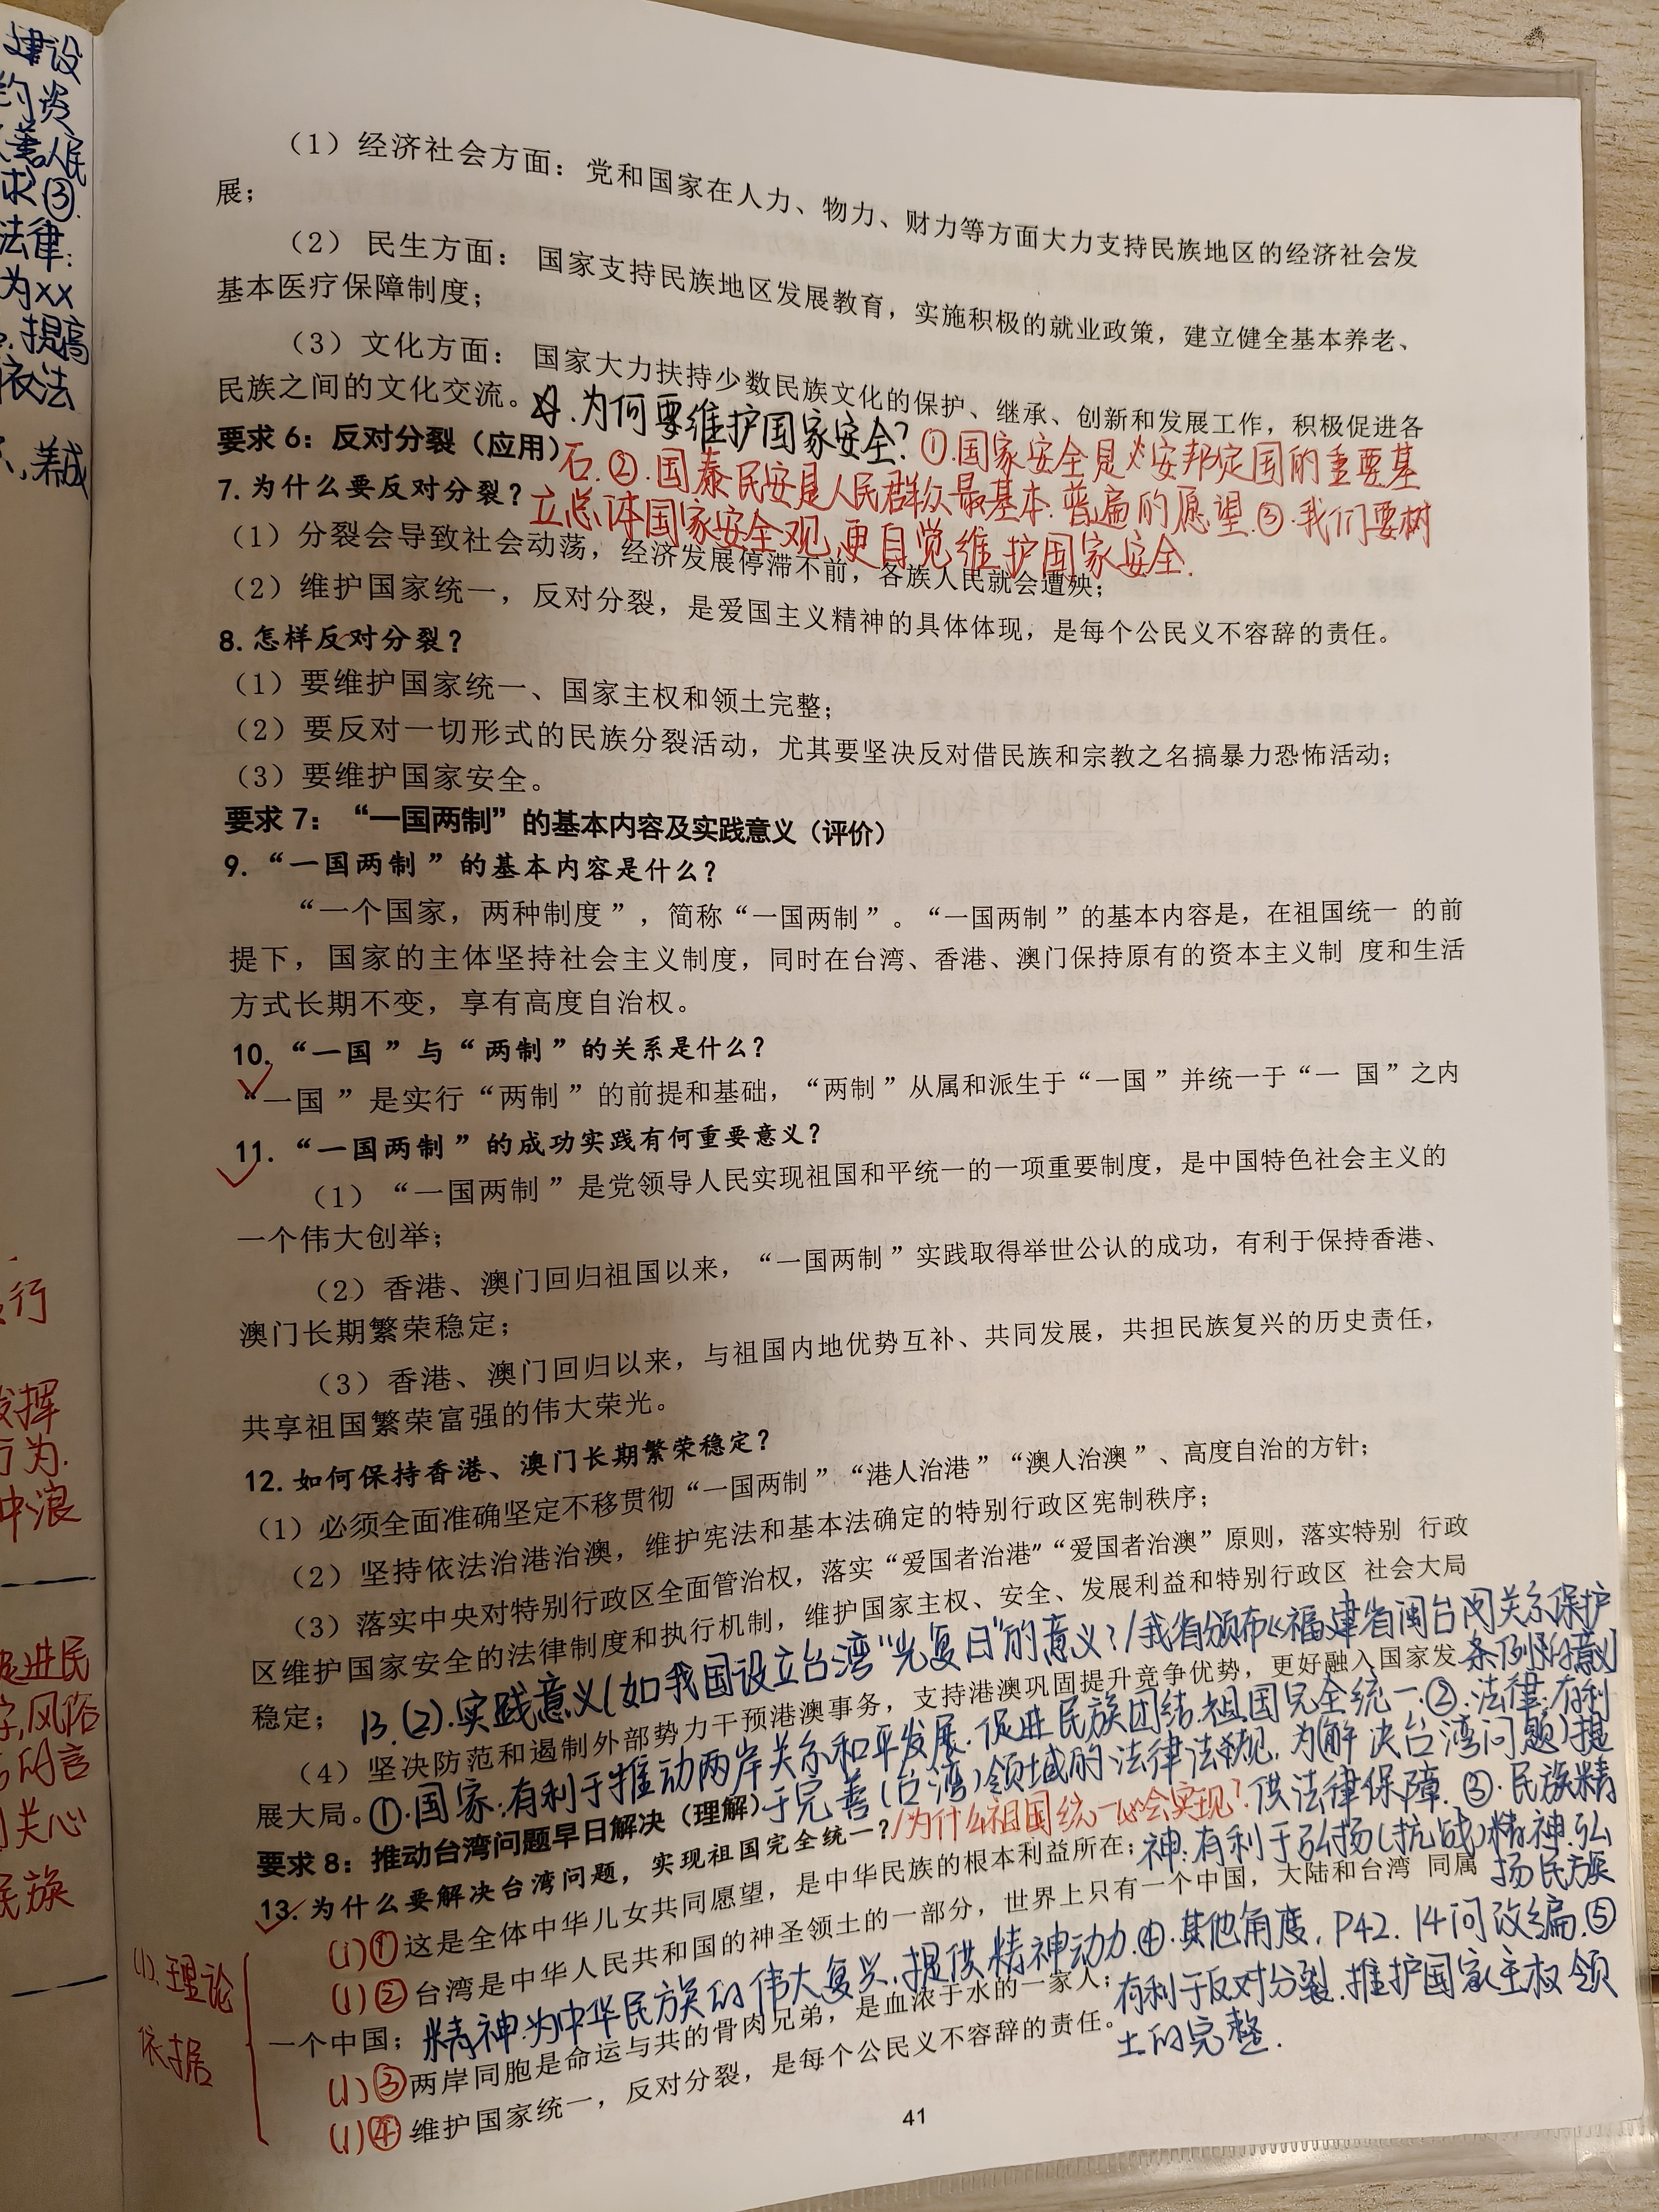 建设
约 资
善人民
求③.
法律:
为xx
提高
依法
行
发挥
行为.
冲浪
促进民
字,风俗
的言
关心
民族
(1) 经济社会方面：党和国家在人力、物力、财力等方面大力支持民族地区的经济社会发
展；
(2) 民生方面： 国家支持民族地区发展教育，实施积极的就业政策，建立健全基本养老、
基本医疗保障制度；
(3) 文化方面： 国家大力扶持少数民族文化的保护、继承、创新和发展工作，积极促进各
民族之间的文化交流。
为何要维护国家安全?①.国家安全是安邦定国的重要基
石.②.国泰民安是人民群众最基本.普遍的愿望.③.我们要树
立总体国家安全观,更自觉维护国家安全.
要求 6：反对分裂（应用）
7. 为什么要反对分裂？
(1) 分裂会导致社会动荡，经济发展停滞不前，各族人民就会遭殃；
(2) 维护国家统一，反对分裂，是爱国主义精神的具体体现，是每个公民义不容辞的责任。
8. 怎样反对分裂？
(1) 要维护国家统一、国家主权和领土完整；
(2) 要反对一切形式的民族分裂活动，尤其要坚决反对借民族和宗教之名搞暴力恐怖活动；
(3) 要维护国家安全。
要求 7：“一国两制”的基本内容及实践意义（评价）
9. “一国两制”的基本内容是什么？
“一个国家，两种制度”，简称“一国两制”。“一国两制”的基本内容是，在祖国统一 的前
提下，国家的主体坚持社会主义制度，同时在台湾、香港、澳门保持原有的资本主义制 度和生活
方式长期不变，享有高度自治权。
10. “一国”与“两制”的关系是什么？
“一国 ”是实行“两制”的前提和基础，“两制”从属和派生于“一国”并统一于“一 国”之内
11. “一国两制”的成功实践有何重要意义？
(1) “一国两制”是党领导人民实现祖国和平统一的一项重要制度，是中国特色社会主义的
一个伟大创举；
(2) 香港、澳门回归祖国以来，“一国两制”实践取得举世公认的成功，有利于保持香港、
澳门长期繁荣稳定；
(3) 香港、澳门回归以来，与祖国内地优势互补、共同发展，共担民族复兴的历史责任，
共享祖国繁荣富强的伟大荣光。
12. 如何保持香港、澳门长期繁荣稳定？
(1) 必须全面准确坚定不移贯彻“一国两制”“港人治港”“澳人治澳”、高度自治的方针；
(2) 坚持依法治港治澳，维护宪法和基本法确定的特别行政区宪制秩序；
(3) 落实中央对特别行政区全面管治权，落实“爱国者治港”“爱国者治澳”原则，落实特别 行政
区维护国家安全的法律制度和执行机制，维护国家主权、安全、发展利益和特别行政区 社会大局
稳定；
(4) 坚决防范和遏制外部势力干预港澳事务，支持港澳巩固提升竞争优势，更好融入国家发
展大局。
13.(2).实践意义(如我国设立台湾“光复日”的意义?/我省颁布《福建省闽台关系保护
条例》的意义)
①.国家:有利于推动两岸关系和平发展.促进民族团结.祖国完全统一.②.法律:有利
于完善(台湾)领域的法律法规,为(解决台湾问题)提
供法律保障.③.民族精
神:有利于弘扬(抗战)精神.弘
扬民族
精神.为中华民族的伟大复兴.提供精神动力.④.其他角度.P42.14问改编.⑤
有利于反对分裂.维护国家主权领
土的完整.
要求 8：推动台湾问题早日解决（理解）
13. 为什么要解决台湾问题，实现祖国完全统一？/为什么祖国统一必会实现?
(1)①这是全体中华儿女共同愿望，是中华民族的根本利益所在；
(1)②台湾是中华人民共和国的神圣领土的一部分，世界上只有一个中国，大陆和台湾 同属
一个中国；
(1)③两岸同胞是命运与共的骨肉兄弟，是血浓于水的一家人；
(1)④维护国家统一，反对分裂，是每个公民义不容辞的责任。
(1).理论
依据
41